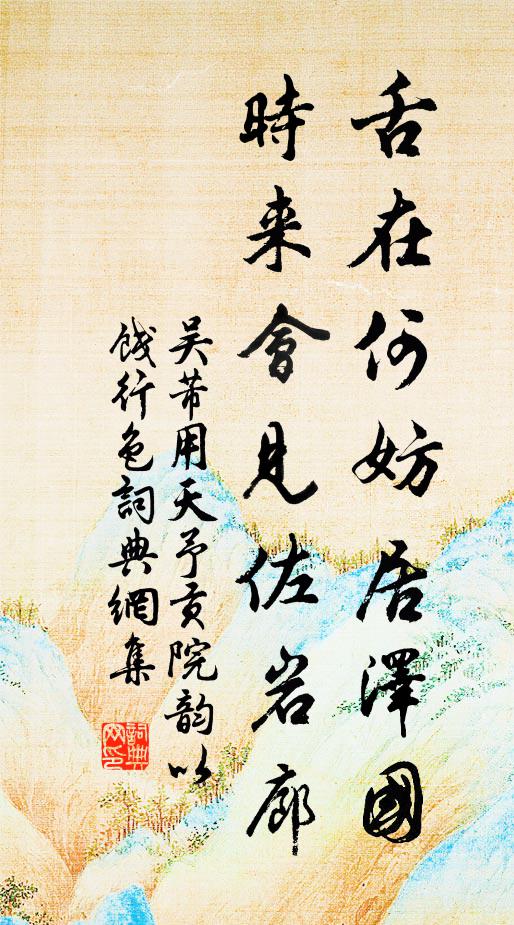 舌在何妨居澤國
時来會見佐岩廊
吴芾用天予貢院韵以
餞行色詞典網集
詞典
网印